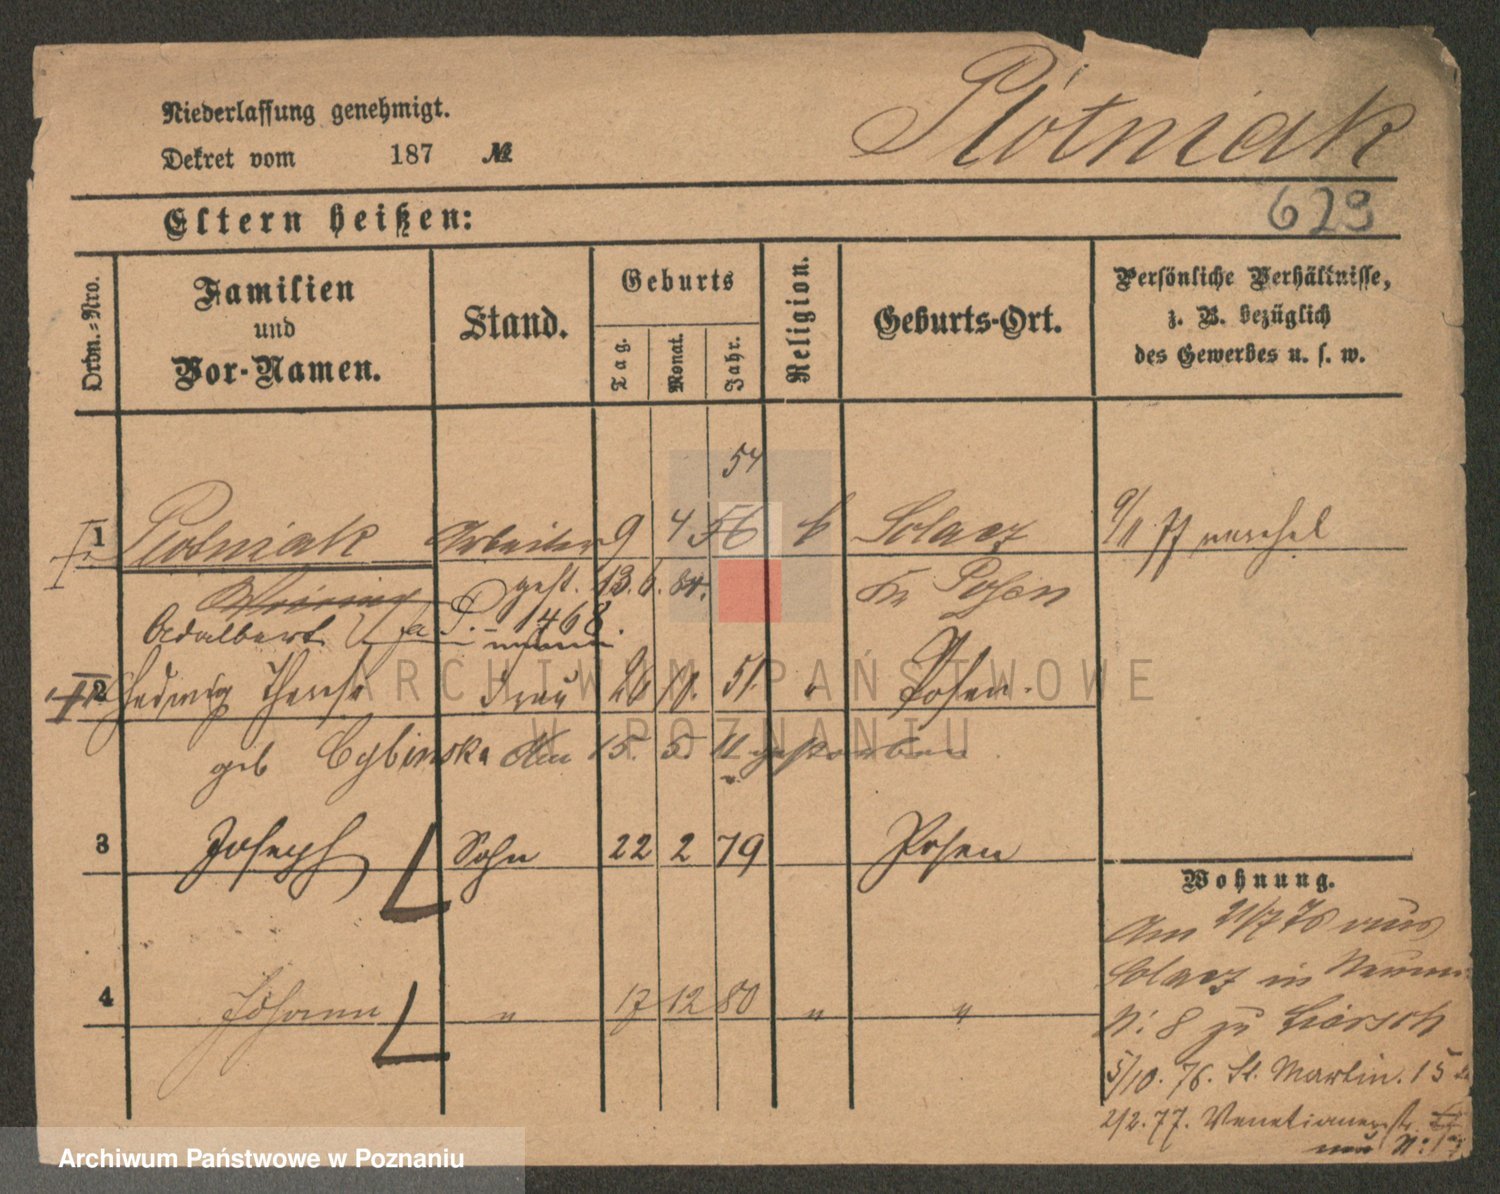 Niederlassung genehmigt.
Dekret vom 187 №
Płótniak
Eltern heißen:
629
Ordn.-Nro.
Familien
und
Vor-Namen.
Stand.
Geburts
Tag.
Monat.
Jahr.
Religion.
Geburts-Ort.
Persönliche Verhältnisse,
z. B. bezüglich
des Gewerbes u. s. w.
54
1 Plotniak Arbeiter 9 4 56 k Solacz 9/11 77
gest. 13. 6. Kr Posen
Adalbert 1468.
2 Hedwig Therese Frau 26 10. 51. " Posen.
geb Cybinska Am 15. 5. 11 gestorben
3 Joseph Sohn 22 2 79 Posen
4 Johann " 17 12 80 " "
Wohnung.
Am 21/7 76 aus
Solacz in
N: 8 zu
5/10. 76. St. Martin. 15
2/2. 77. Venetianerstr.
ARCHIWUM PAŃSTWOWE
W POZNANIU
Archiwum Państwowe w Poznaniu